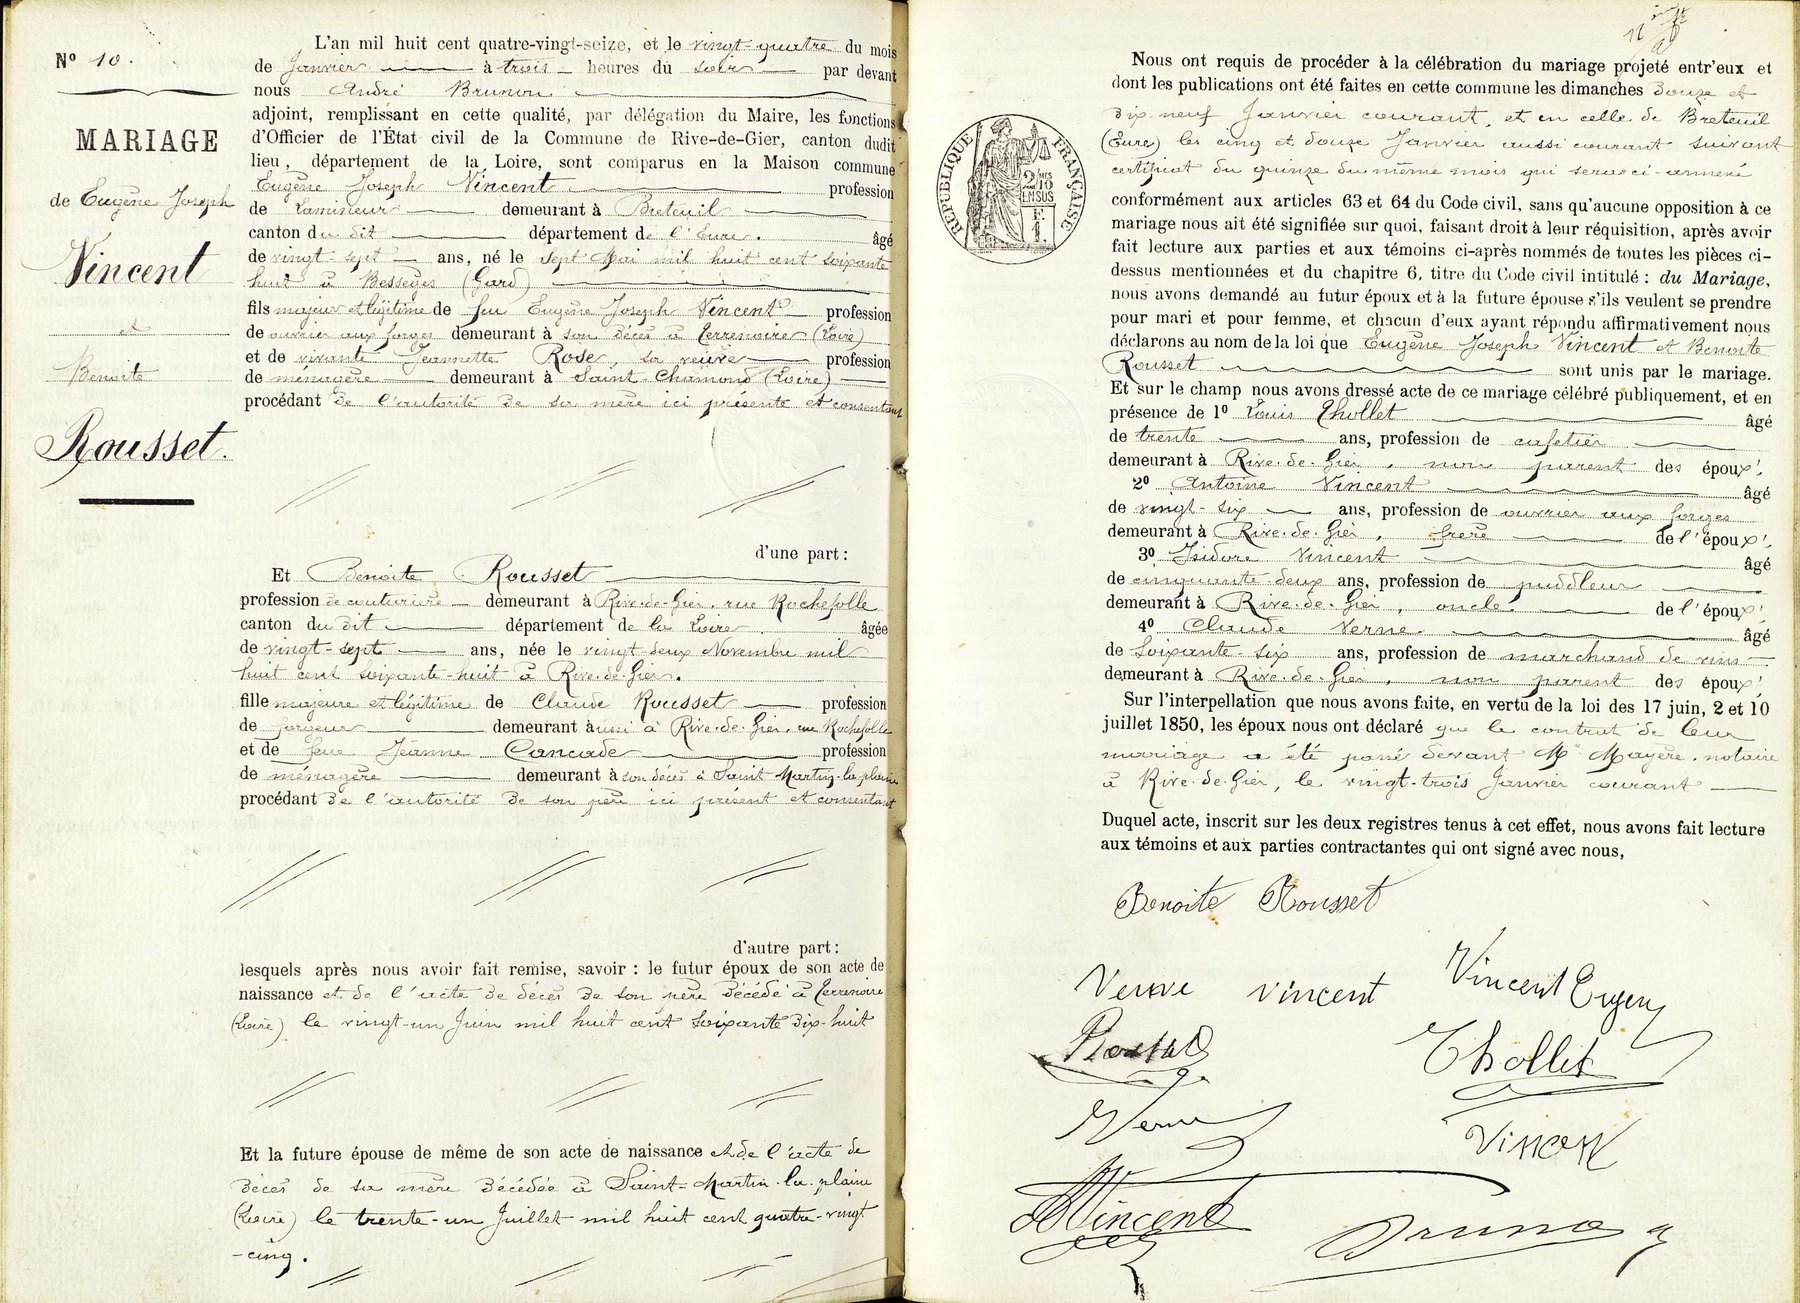 N° 10.
MARIAGE
de Eugène Joseph
Vincent
et
Benoite
Rousset.
L'an mil huit cent quatre-vingt-seize, et le vingt-quatre du mois
de Janvier à trois heures du soir par devant
nous André Brunon
adjoint, remplissant en cette qualité, par délégation du Maire, les fonctions
d'Officier de l'État civil de la Commune de Rive-de-Gier, canton dudit
lieu, département de la Loire, sont comparus en la Maison commune
Eugène Joseph Vincent profession
de Lamineur demeurant à Breteuil
canton du dit département de l'Eure. âgé
de vingt-sept ans, né le sept Mai mil huit cent soixante
huit à Bessèges (Gard)
fils majeur et légitime de feu Eugène Joseph Vincent profession
de ouvrier aux forges demeurant à son décès à Terrenoire (Loire)
et de vivante Jeannette Rose, sa veuve profession
de ménagère demeurant à Saint Chamond (Loire)
procédant de l'autorité de sa mère ici présente et consentant
d'une part :
Et Benoite Rousset
profession de couturière demeurant à Rive-de-Gier, rue Rochefolle
canton du dit département de la Loire. âgée
de vingt-sept ans, née le vingt-deux Novembre mil
huit cent soixante-huit à Rive-de-Gier.
fille majeure et légitime de Claude Rousset profession
de forgeur demeurant aussi à Rive-de-Gier, rue Rochefolle
et de feue Jeanne Cancade profession
de ménagère demeurant à son décès à Saint Martin-la-plaine
procédant de l'autorité de son père ici présent et consentant
d'autre part :
lesquels après nous avoir fait remise, savoir : le futur époux de son acte de
naissance et de l'acte de décès de son père décédé à Terrenoire
(Loire) le vingt-un Juin mil huit cent soixante dix-huit
Et la future épouse de même de son acte de naissance et de l'acte de
décès de sa mère décédée à Saint-Martin-la-plaine
(Loire) le trente-un Juillet mil huit cent quatre-vingt
-cinq.
Nous ont requis de procéder à la célébration du mariage projeté entr'eux et
dont les publications ont été faites en cette commune les dimanches douze et
dix-neuf Janvier courant, et en celle de Breteuil
(Eure) les cinq et douze Janvier aussi courant suivant
certificat du quinze du même mois qui sera ci-annexé
conformément aux articles 63 et 64 du Code civil, sans qu'aucune opposition à ce
mariage nous ait été signifiée sur quoi, faisant droit à leur réquisition, après avoir
fait lecture aux parties et aux témoins ci-après nommés de toutes les pièces ci-
dessus mentionnées et du chapitre 6, titre du Code civil intitulé : du Mariage,
nous avons demandé au futur époux et à la future épouse s'ils veulent se prendre
pour mari et pour femme, et chacun d'eux ayant répondu affirmativement nous
déclarons au nom de la loi que Eugène Joseph Vincent et Benoite
Rousset sont unis par le mariage.
Et sur le champ nous avons dressé acte de ce mariage célébré publiquement, et en
présence de 1° Louis Thollet âgé
de trente ans, profession de cafetier
demeurant à Rive-de-Gier, non parent des époux
2° Antoine Vincent âgé
de vingt-six ans, profession de ouvrier aux forges
demeurant à Rive-de-Gier, frère de l'époux
3° Isidore Vincent âgé
de cinquante-deux ans, profession de puddleur
demeurant à Rive-de-Gier, oncle de l'époux
4° Claude Verne âgé
de soixante-six ans, profession de marchand de vins
demeurant à Rive-de-Gier, non parent des époux
Sur l'interpellation que nous avons faite, en vertu de la loi des 17 juin, 2 et 10
juillet 1850, les époux nous ont déclaré que le contrat de leur
mariage a été passé devant Me Mayère, notaire
à Rive-de-Gier, le vingt-trois Janvier courant
Duquel acte, inscrit sur les deux registres tenus à cet effet, nous avons fait lecture
aux témoins et aux parties contractantes qui ont signé avec nous,
Benoite Rousset
Veuve Vincent Vincent Eugen
Thollet
Verne
Vincent
Vincent
Bruno
RÉPUBLIQUE FRANÇAISE
2/10
EN SUS